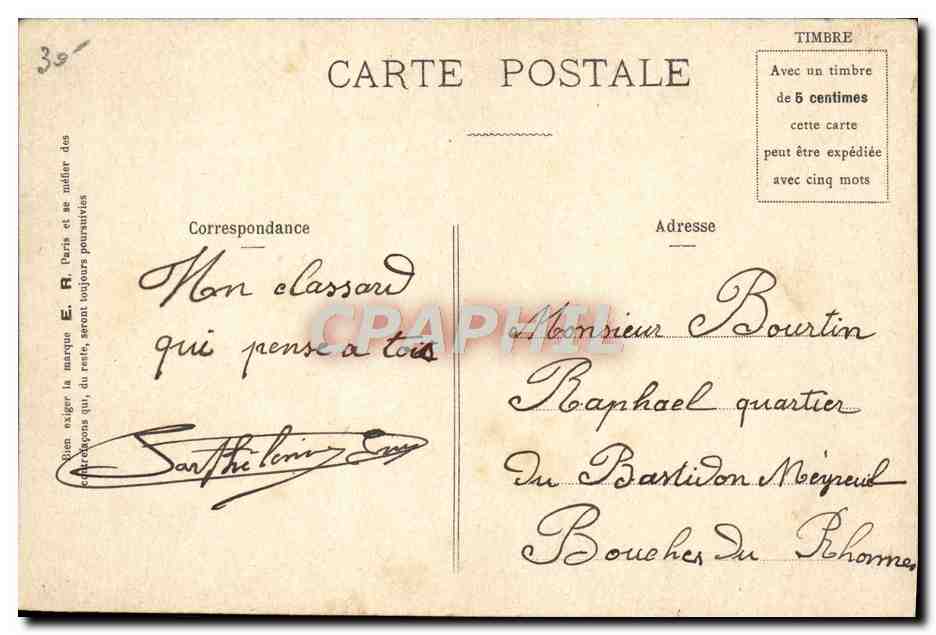 39
CARTE POSTALE
TIMBRE
Avec un timbre
de 5 centimes
cette carte
peut être expédiée
avec cinq mots
Bien exiger la marque E. R. Paris et se méfier des
contrefaçons qui, du reste, seront toujours poursuivies
Correspondance
Mon classard
qui pense a toi
Barthélemy
Adresse
Monsieur Bourtin
Raphael quartier
du Bastidon Meyreuil
Bouches du Rhonnes
CPAPHIL